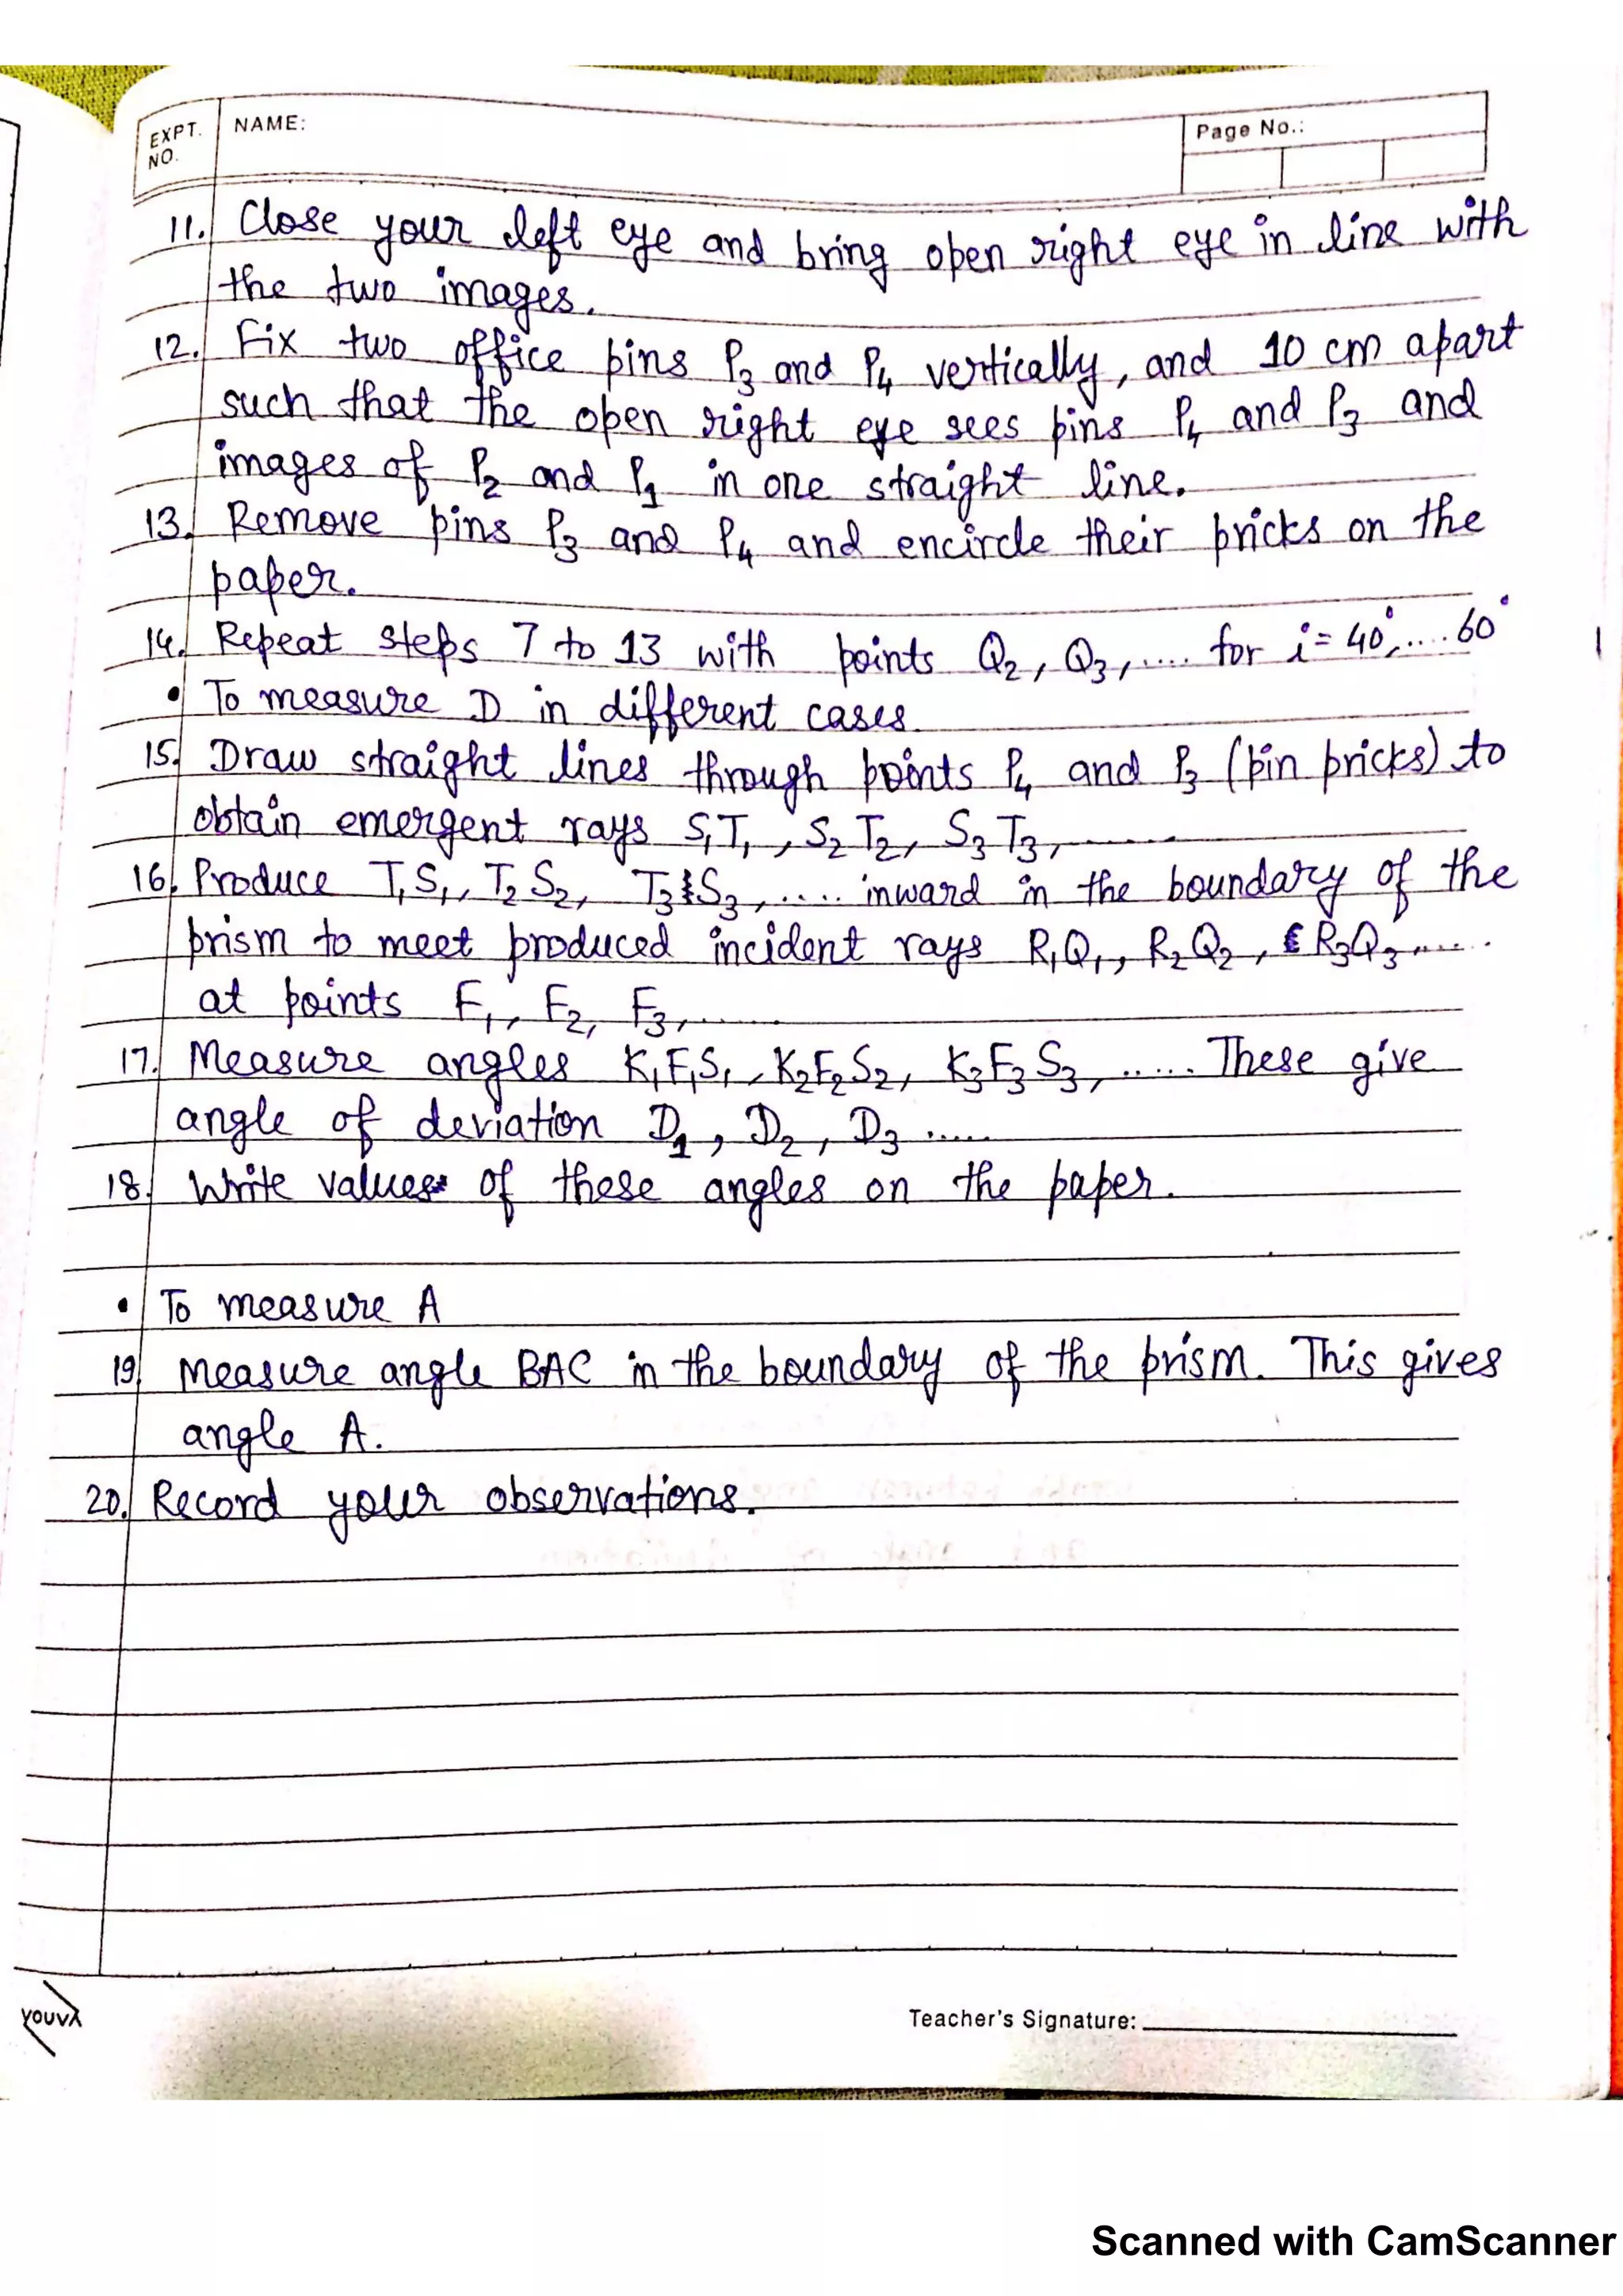 EXPT. NO.
NAME:
Page No.:
11. Close your left eye and bring open right eye in line with
the two images.
12. Fix two office pins P₃ and P₄ vertically, and 10 cm apart
such that the open right eye sees pins P₄ and P₃ and
images of P₂ and P₁ in one straight line.
13. Remove pins P₃ and P₄ and encircle their pricks on the
paper.
14. Repeat steps 7 to 13 with points Q₂, Q₃, .... for i = 40°, .... 60°
• To measure D in different cases.
15. Draw straight lines through points P₄ and P₃ (pin pricks) to
obtain emergent rays S₁T₁, S₂T₂, S₃T₃, ......
16. Produce T₁S₁, T₂S₂, T₃S₃, .... inward in the boundary of the
prism to meet produced incident rays R₁Q₁, R₂Q₂, R₃Q₃ .....
at points F₁, F₂, F₃, .....
17. Measure angles K₁F₁S₁, K₂F₂S₂, K₃F₃S₃, ..... These give
angle of deviation D₁, D₂, D₃ .....
18. Write values of these angles on the paper.
• To measure A
19. Measure angle BAC in the boundary of the prism. This gives
angle A.
20. Record your observations.
YOUVA
Teacher's Signature:
Scanned with CamScanner